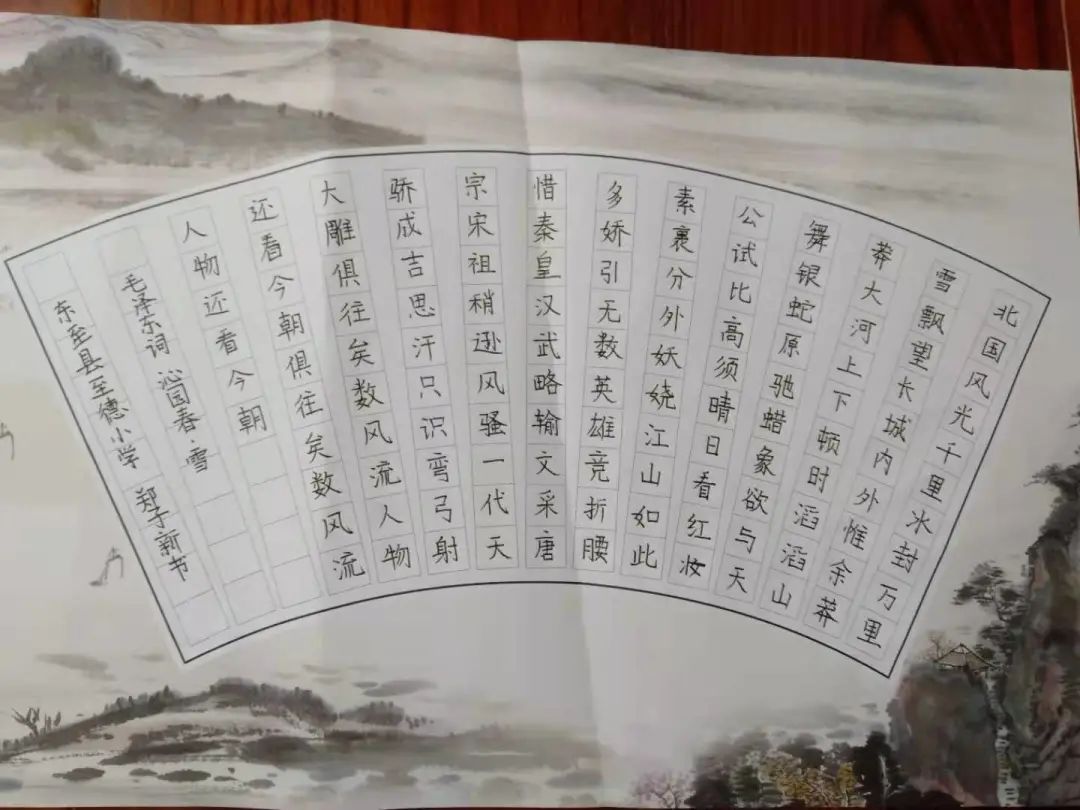 北国风光千里冰封万里
雪飘望长城内外惟余莽
莽大河上下顿时滔滔山
舞银蛇原驰蜡象欲与天
公试比高须晴日看红妆
素裹分外妖娆江山如此
多娇引无数英雄竞折腰
惜秦皇汉武略输文采唐
宗宋祖稍逊风骚一代天
骄成吉思汗只识弯弓射
大雕俱往矣数风流人物
还看今朝俱往矣数风流
人物还看今朝
毛泽东词 沁园春·雪
东至县至德小学 郑子新书